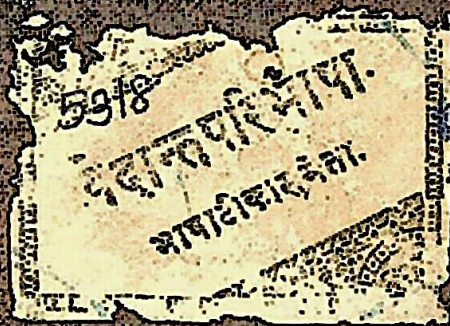 53/8
वेदान्तपरिभाषा.
भाषाटीकासमेता.